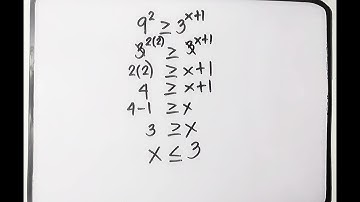 9² ≥ 3^{x+1}
3^{2(2)} ≥ 3^{x+1}
2(2) ≥ x+1
4 ≥ x+1
4-1 ≥ x
3 ≥ x
x ≤ 3